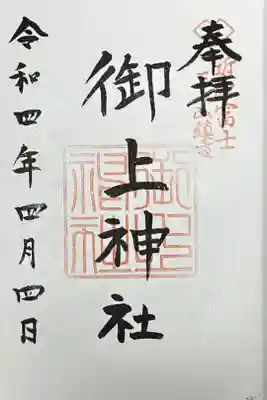 奉拝
御上神社
令和四年四月四日